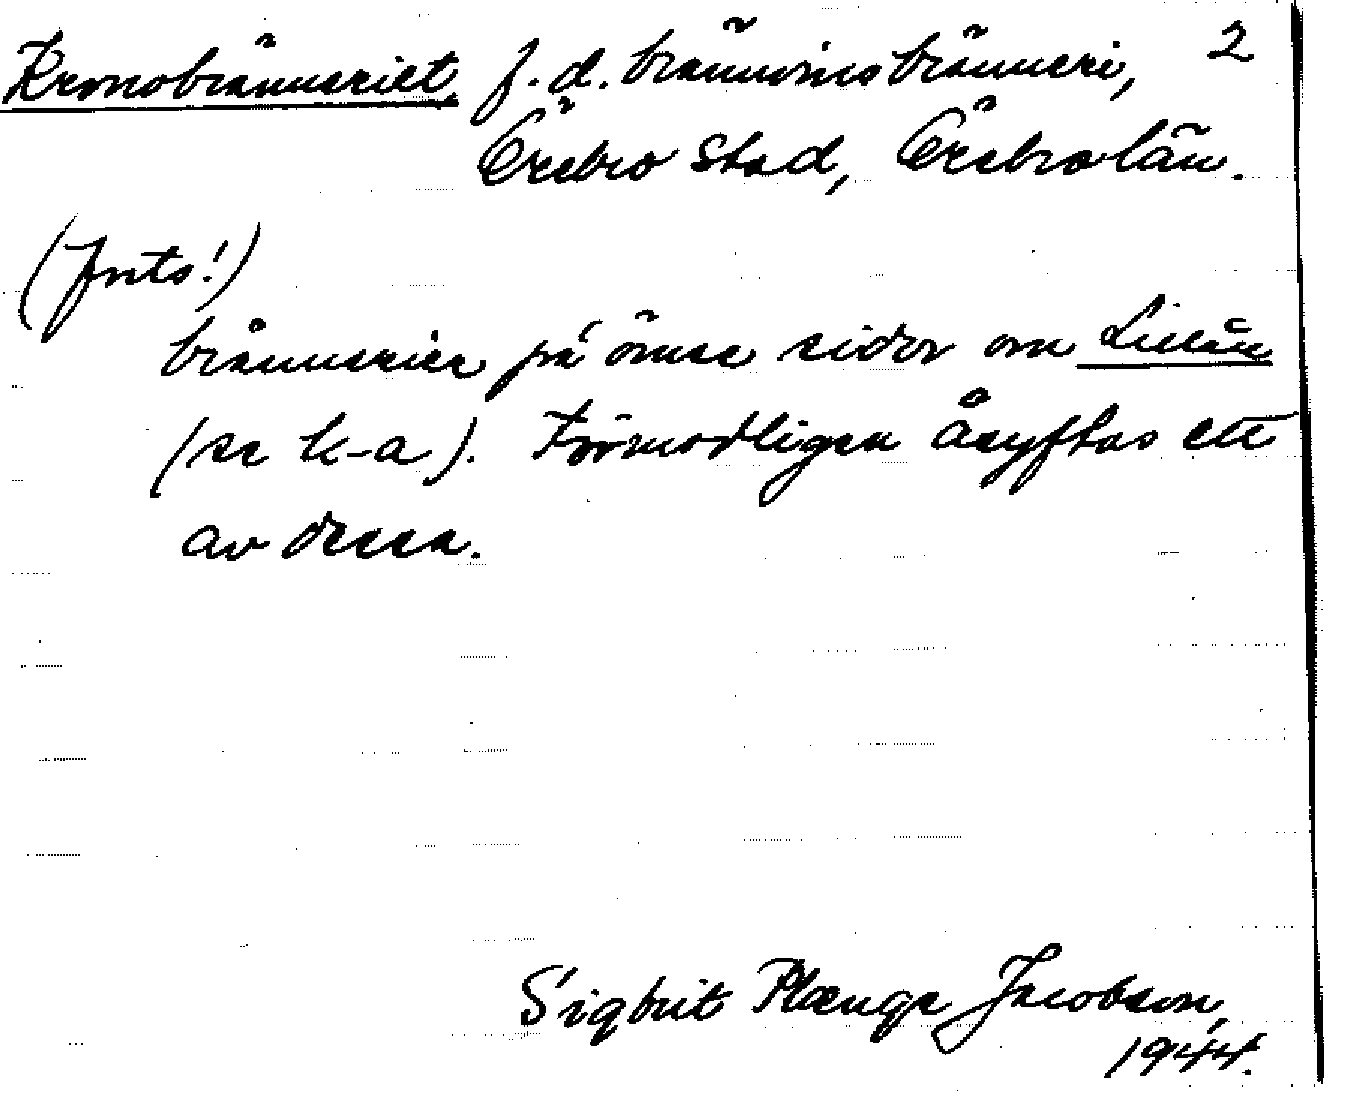 Kronobränneriet, f.d. brännvinsbränneri, 2
Örebro stad, Örebro län.
(forts!)
brännerier på ömse sidor om Lillån
(se k-a). Förmodligen åsyftas ett
av dessa.
Sigbrit Plænge Jacobson,
1944.